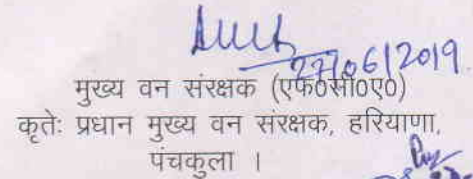 27/06/2019.
मुख्य वन संरक्षक (एफ०सी०ए०)
कृतेः प्रधान मुख्य वन संरक्षक, हरियाणा,
पंचकुला ।